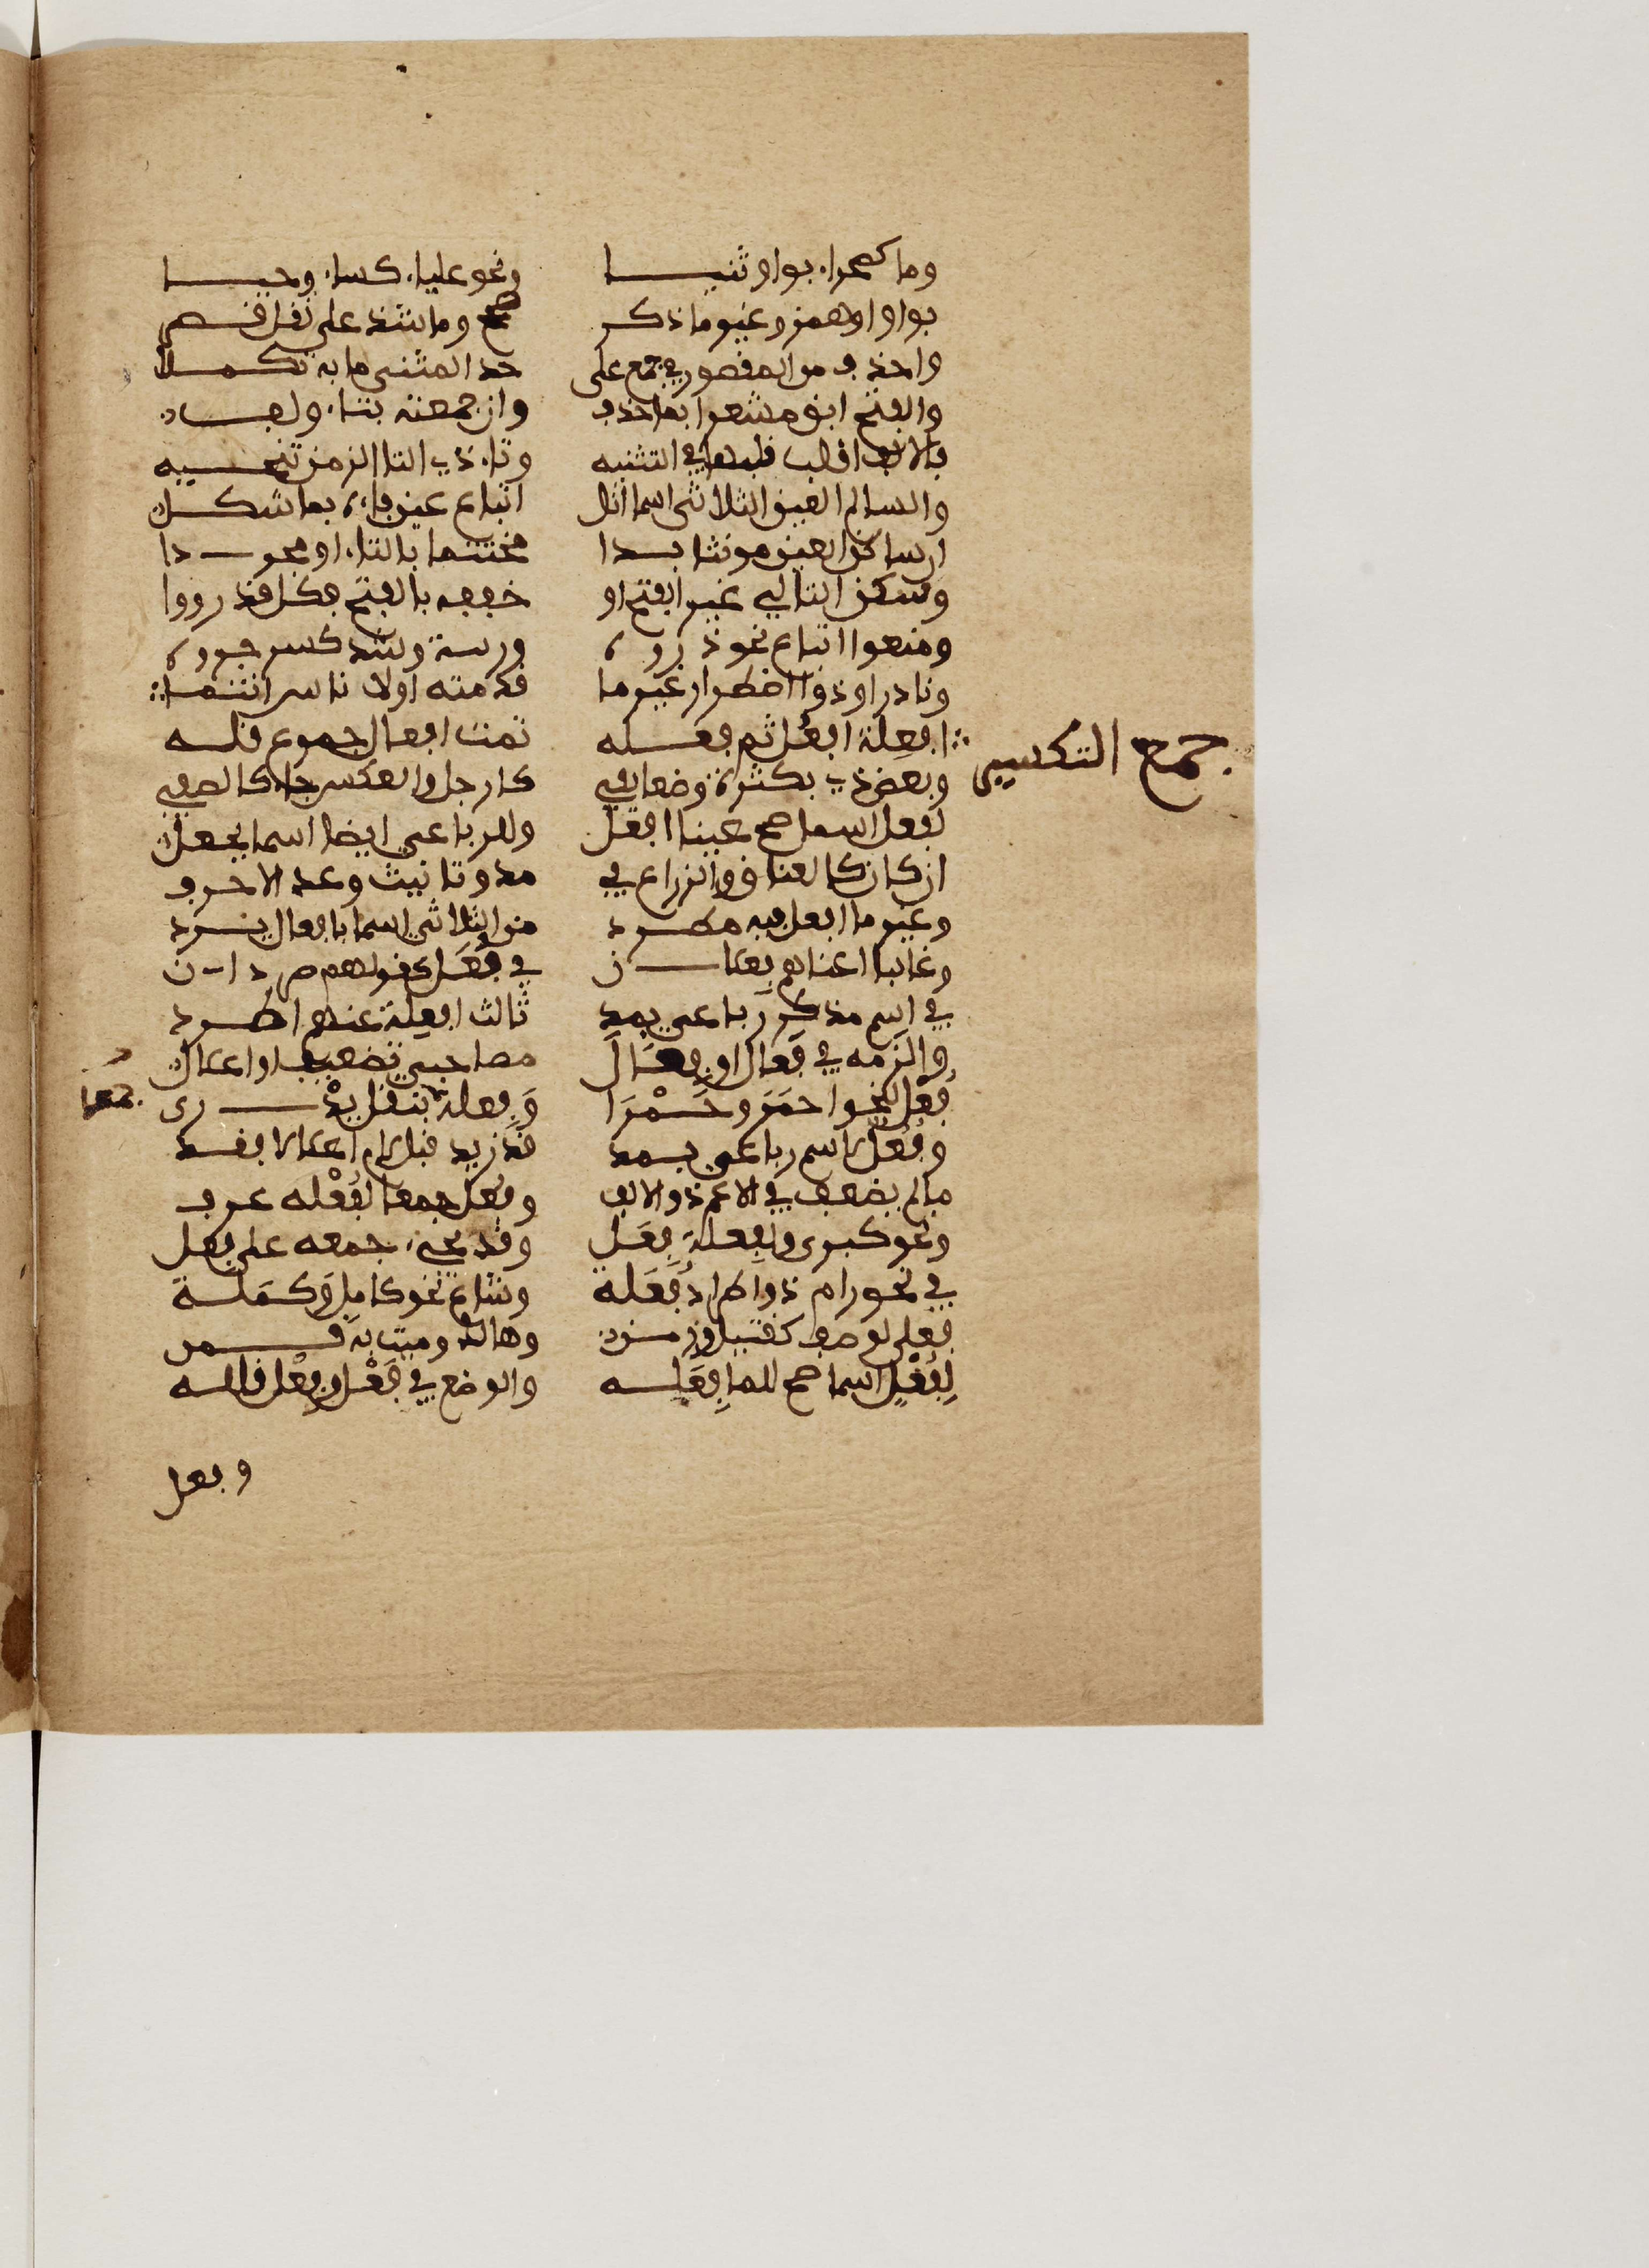 وما كصحراء بواو ثنيا ونحو علياء كساء وحيا
بواو او همز وغير ما ذكر صحح وما شذ على نقل قصر
واحذف من المقصور في جمع على حد المثنى ما به تكملا
والفتح ابق مشعرا بما حذف وان جمعته بتاء والف
فالالف اقلب قلبها في التثنيه وتاء ذي التا الزمن تنحيه
والسالم العين الثلاثي اسما انل اتباع عين فاءه بما شكل
ان ساكن العين مونثا بدا مختتما بالتاء او مجردا
وسكن التالي غير الفتح او خففه بالفتح فكل قد رووا
ومنعوا اتباع نحو ذروه وربية وشذ كسر جروه
ونادر او ذو اضطرار غير ما قدمته اولا ناس انتما
جمع التكسير
افعِلة افعُل ثم فعله تمت افعال جموع قله
وبعض ذي بكثرة وضعا يفي كارجل والعكس جاء كالصفي
لفعل اسما صح عينا افعل وللرباعي ايضا اسما يجعل
ان كان كالعناق والذراع في مد وتانيث وعد الاحرف
وغير ما افعل فيه مطرد من الثلاثي اسما بافعال يرد
وغالبا اغناهم فعلان في فُعَل كقولهم صردان
في اسم مذكر رباعي بمد ثالث افعِلة عنهم اطرد
والزمه في فَعال او فِعال مصاحبي تضعيف او اعلال
فُعْل لنحو احمَر وحَمْرَا وَفِعلة جمعا بنقل يدْرى
وفُعُل لاسم رباعي بمد قد زيد قبل لام اعلالا فقد
ما لم يضعف في الاعم ذو الالف وفُعَل جمعا لفُعْله عرف
ونحو كبرى ولفِعلة فِعَل وقد يجيء جمعه على فعل
في نحو رام ذو اطراد فُعَلة وشاع نحو كامل وكَمَلة
فعلى لوصف كقتيل وزمن وهالك وميت به قمن
لِفُعْلٍ اسما صح لاما فِعَله والوضع في فَعْل وفِعْل قلله
وفعل